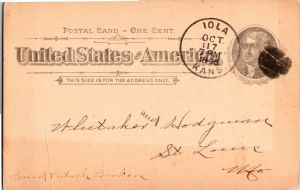 POSTAL CARD - ONE CENT.
United States of America
THIS SIDE IS FOR THE ADDRESS ONLY.
IOLA
OCT
17
7 PM
KANS.
and
Whitaker Hodgman
St Louis
Mo